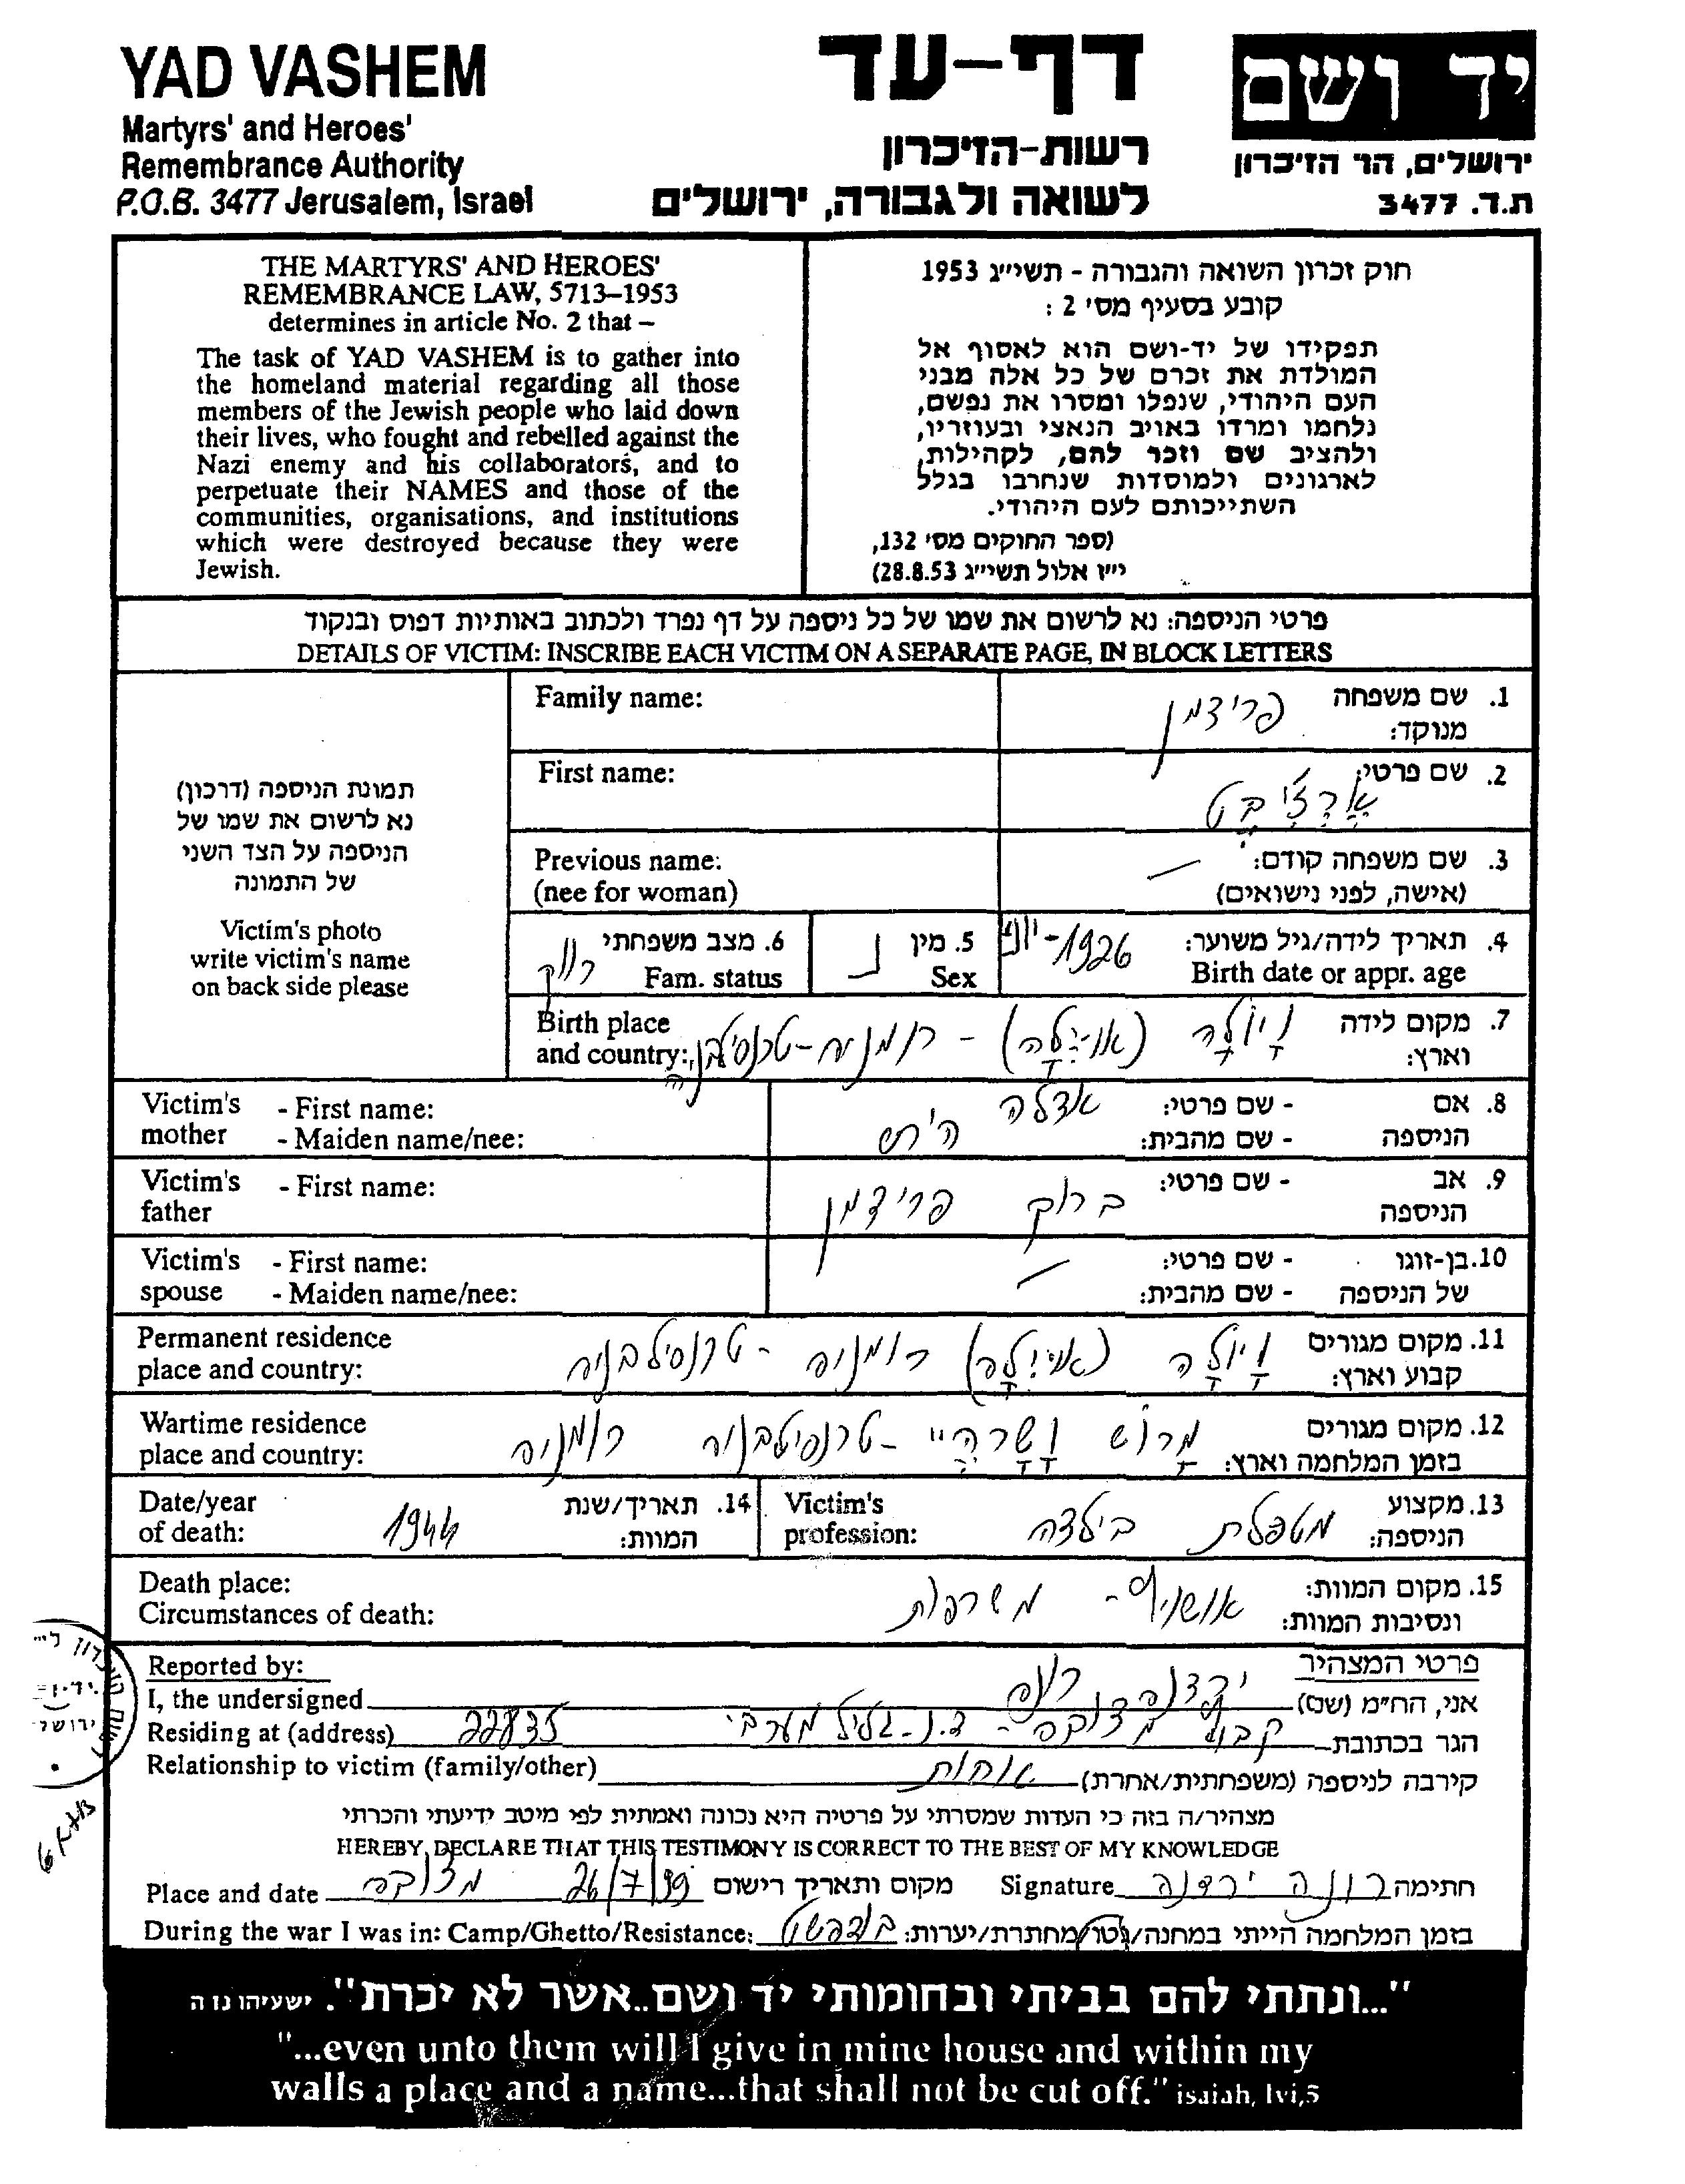 YAD VASHEM
Martyrs' and Heroes'
Remembrance Authority
P.O.B. 3477 Jerusalem, Israel
דף-עד
רשות-הזיכרון
לשואה ולגבורה, ירושלים
יד ושם
ירושלים, הר הזיכרון
ת.ד. 3477
THE MARTYRS' AND HEROES'
REMEMBRANCE LAW, 5713–1953
determines in article No. 2 that –
The task of YAD VASHEM is to gather into
the homeland material regarding all those
members of the Jewish people who laid down
their lives, who fought and rebelled against the
Nazi enemy and his collaborators, and to
perpetuate their NAMES and those of the
communities, organisations, and institutions
which were destroyed because they were
Jewish.
חוק זכרון השואה והגבורה - תשי״ג 1953
קובע בסעיף מס׳ 2 :
תפקידו של יד-ושם הוא לאסוף אל
המולדת את זכרם של כל אלה מבני
העם היהודי, שנפלו ומסרו את נפשם,
נלחמו ומרדו באויב הנאצי ובעוזריו,
ולהציב שם וזכר להם, לקהילות,
לארגונים ולמוסדות שנחרבו בגלל
השתייכותם לעם היהודי.
(ספר החוקים מס׳ 132,
י״ז אלול תשי״ג 28.8.53)
פרטי הניספה: נא לרשום את שמו של כל ניספה על דף נפרד ולכתוב באותיות דפוס ובנקוד
DETAILS OF VICTIM: INSCRIBE EACH VICTIM ON A SEPARATE PAGE, IN BLOCK LETTERS
תמונת הניספה (דרכון)
נא לרשום את שמו של
הניספה על הצד השני
של התמונה
Victim's photo
write victim's name
on back side please
Family name: פרידמן 1. שם משפחה
מנוקד:
First name: 2. שם פרטי:
אֶרְצִ׳בֶּט
Previous name: 3. שם משפחה קודם: —
(nee for woman) (אישה, לפני נישואים)
4. תאריך לידה/גיל משוער: 1926 - יוני
Birth date or appr. age
5. מין נ
Sex
6. מצב משפחתי רווק
Fam. status
Birth place 7. מקום לידה
and country: וארץ:
Victim's - First name: אדלה - שם פרטי: 8. אם
mother - Maiden name/nee: הירש - שם מהבית: הניספה
Victim's - First name: ברוך פרידמן - שם פרטי: 9. אב
father הניספה
Victim's - First name: — - שם פרטי: 10. בן-זוגו
spouse - Maiden name/nee: - שם מהבית: של הניספה
Permanent residence 11. מקום מגורים
place and country: רומניה - טרנסילבניה קבוע וארץ:
Wartime residence 12. מקום מגורים
place and country: טרנסילבניה רומניה בזמן המלחמה וארץ:
Date/year 14. תאריך/שנת
of death: 1944 המוות:
Victim's 13. מקצוע
profession: מטפלת בילדה הניספה:
Death place: 15. מקום המוות:
Circumstances of death: אושויץ - משרפות ונסיבות המוות:
Reported by: פרטי המצהיר
I, the undersigned ירדנה רונה אני, הח״מ (שם)
Residing at (address) 22835 ד.נ. גליל מערבי - קבוץ מצובה הגר בכתובת
Relationship to victim (family/other) אחות קירבה לניספה (משפחתית/אחרת)
מצהיר/ה בזה כי העדות שמסרתי על פרטיה היא נכונה ואמתית לפי מיטב ידיעתי והכרתי
HEREBY DECLARE THAT THIS TESTIMONY IS CORRECT TO THE BEST OF MY KNOWLEDGE
Place and date מצובה 26/7/99 מקום ותאריך רישום Signature רונה ירדנה חתימה
During the war I was in: Camp/Ghetto/Resistance: בודפשט בזמן המלחמה הייתי במחנה/גטו/מחתרת/יערות:
"...ונתתי להם בביתי ובחומותי יד ושם..אשר לא יכרת". ישעיהו נו ה
"...even unto them will I give in mine house and within my
walls a place and a name...that shall not be cut off." isaiah, lvi,5